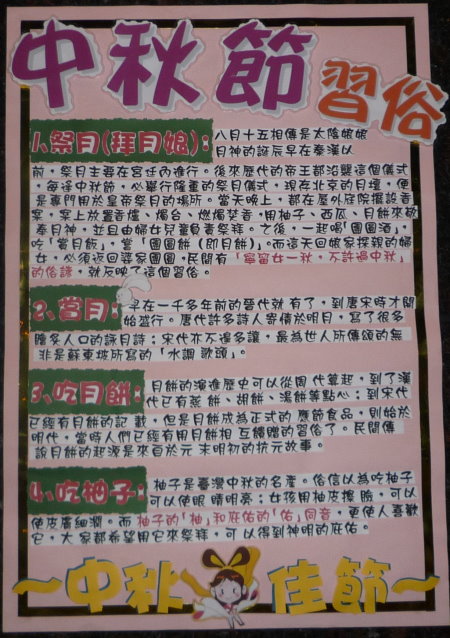 中秋節習俗
1.祭月(拜月娘):八月十五相傳是太陰娘娘
月神的誕辰早在秦漢以
前，祭月主要在宮廷內進行。後來歷代的帝王都沿襲這個儀式
，每逢中秋節，必舉行隆重的祭月儀式，現在北京的月壇，便
是專門用於皇帝祭月的場所。當天晚上，都在屋外庭院擺設香
案，案上放置香爐、燭台、燃燭焚香，用柚子、西瓜、月餅來敬
奉月神，並且由婦女兒童負責祭拜。之後，一起喝「團圓酒」，
吃「賞月飯」，嘗「團圓餅（即月餅）」。而這天回娘家探親的婦
女，必須返回婆家團圓，民間有「寧留女一秋，不許過中秋」
的俗諺，就反映了這個習俗。
2.賞月:早在一千多年前的晉代就 有了，到唐宋時才開
始盛行。唐代許多詩人寄情於明月，寫了很多
膾炙人口的詠月詩；宋代亦不遑多讓，最為世人所傳頌的無
非是蘇東坡所寫的「水調 歌頭」。
3.吃月餅:月餅的演進歷史可以從周 代算起，到了漢
代已有蒸 餅、胡餅、湯餅等點心；到宋代
已經有月餅的記 載，但是月餅成為正式的 應節食品，則始於
明代，當時人們已經有用月餅相 互饋贈的習俗了。民間傳
說月餅的起源是來自於元 末明初的抗元故事。
4.吃柚子:柚子是臺灣中秋的名產。俗信以為吃柚子
可以使眼 睛明亮；女孩用柚皮擦 臉，可以
使皮膚細潤。而 柚子的「柚」和庇佑的「佑」同音，更使人喜歡
它，大 家都希望用它來祭拜，可以得到神明的庇佑。
～中秋佳節～